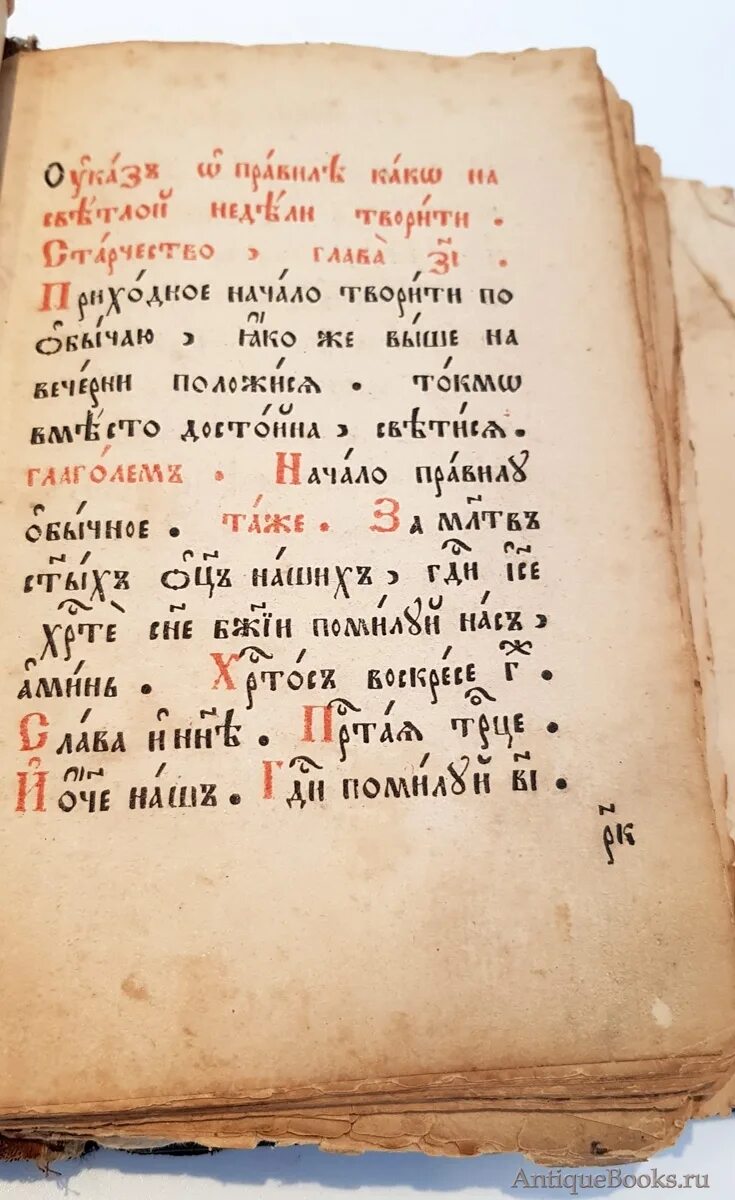 Оу҆ка́зъ ѡ҆ пра́вилѣ ка́кѡ на
свѣ́тлой недѣ́ли твори́ти .
Ста́рчество , глава̀ з҃і .
Прихо́дное нача́ло твори́ти по
ѻ҆бы́чаю , ꙗ҆́ко же вы́ше на
вече́рни положи́сѧ . то́кмѡ
вмѣ́сто досто́йна , свѣти́сѧ .
глаго́лемъ . Нача́ло пра́вилꙋ
ѻ҆бы́чное . та́же . За мл҃твъ
ст҃ы́хъ ѻ҆ц҃ъ на́шихъ , гдⷭ҇и і҆с҃е
хрⷭ҇тѐ сн҃е бж҃їи поми́лꙋй на́съ ,
а҆ми́нь . Хрⷭ҇то́съ воскре́се гⷤ .
Сла́ва и҆ нн҃ѣ . Прⷭ҇та́ѧ трⷪ҇це .
И҆ ѻ҆́ч҃е на́шъ . Гдⷭ҇и поми́лꙋй в҃і .
р҃к
AntiqueBooks.ru